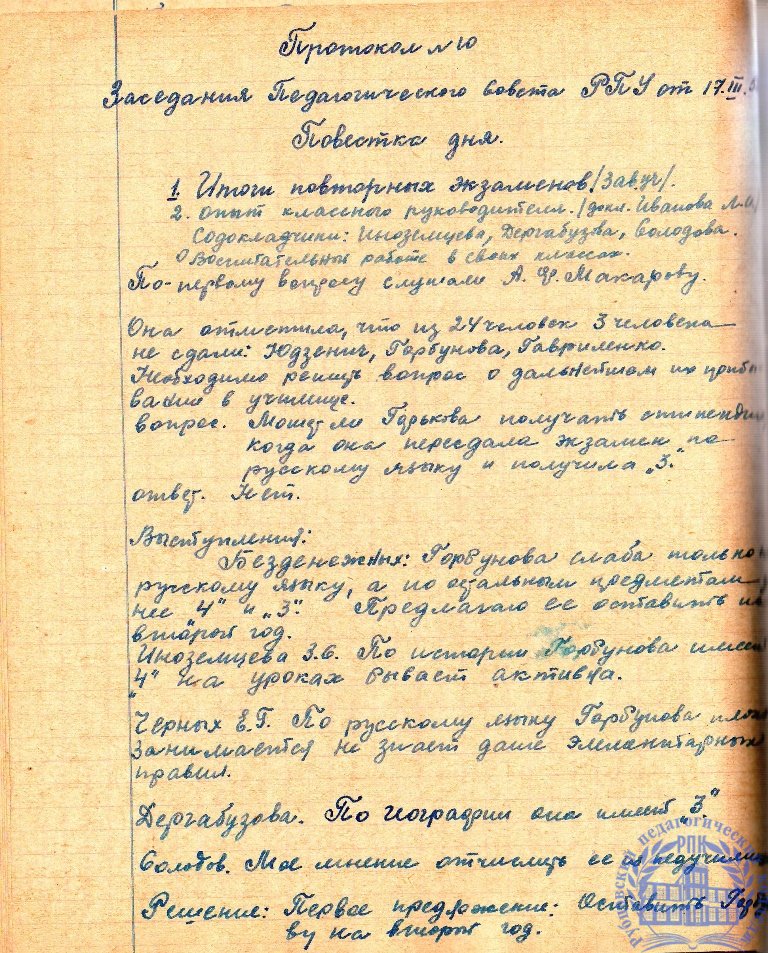 Протокол № 10
Заседания Педагогического Совета РПУ от 17.III.
Повестка дня.
1. Итоги повторных экзаменов. /Завуч/.
2. Опыт классного руководителя. /докл. Иванова Л.И/
Содокладчики: Иноземцева, Дергабузова, Солодова.
О Воспитательной работе в своих классах.
По первому вопросу слушали А. Ф. Макарову.
Она отметила, что из 24 человек 3 человека
не сдали: Юдзенич, Горбунова, Гавриленко.
Необходимо решить вопрос о дальнейшем их пребы
вании в училище.
вопрос. Может ли Горькова получать стипендию
когда она пересдала экзамен по
русскому языку и получила „3."
ответ. Нет.
Выступления:
Безденежных: Горбунова слаба только
русскому языку, а по остальным предметам
нее „4" и „3". Предлагаю ее оставить на
второй год.
Иноземцева З.Б. По истории Горбунова имеет
„4" на уроках бывает активна.
Черных Е.Г. По русскому языку Горбунова плохо
занимается не знает даже элементарных
правил.
Дергабузова. По географии она имеет „3."
Солодов. Мое мнение отчислить ее из педучилища
Решение: Первое предложение: Оставить Горбу
ву на второй год.
Рубцовский педагогический
РПК